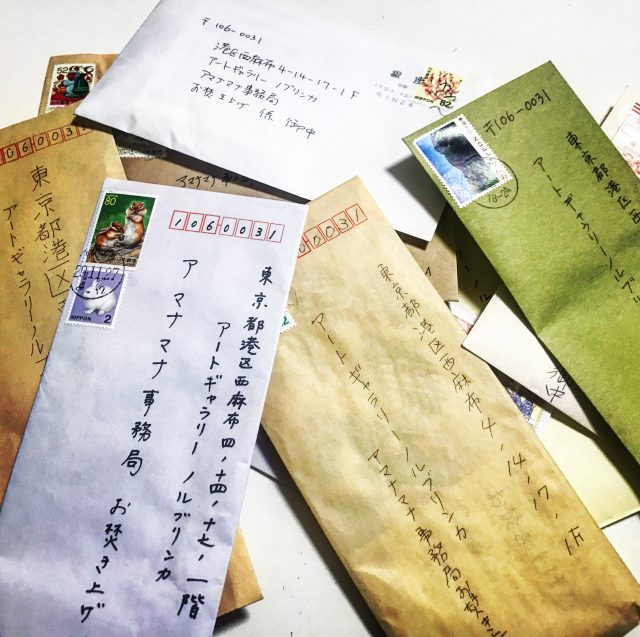 〒106-0031
港区西麻布4-14-17-1F
アートギャラリー ノブリンカ
アマナマナ事務局
お焚き上げ 係 御中
52
82
NIPPON
〒106-0031
東京都港区西
アートギャラリー ノルブリ
18-24
1060031
東京都港
アートギャラリー ノル
アマナマナ事
80
NIPPON
2
1060031
東京都港区西麻布四ノ十四ノ十七ノ一階
アートギャラリー ノルブリンカ
アマナマナ事務局 お焚き上げ
0031
東京都港区西麻布4,14,17,1F
アートギャラリー ノルブリンカ
アマナマナ事務局お焚き